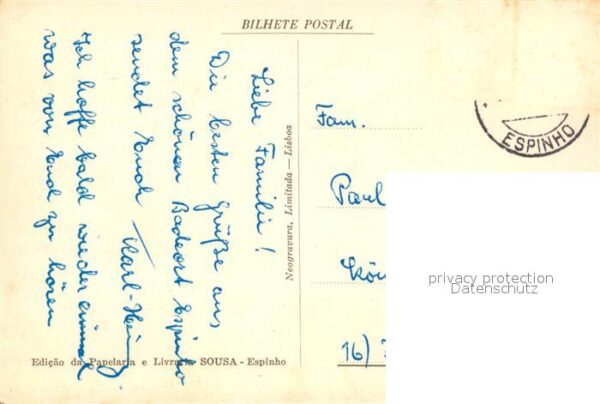 BILHETE POSTAL
Liebe Familie!
Die besten Grüße aus
dem schönen Badeort Espinho
sendet Euch Karl-Heinz
Ich hoffe bald wieder einmal
was von Euch zu hören
Neogravura, Limitada — Lisboa
Edição da Papelaria e Livraria SOUSA - Espinho
ESPINHO
Fam.
Paul
16)
privacy protection
Datenschutz